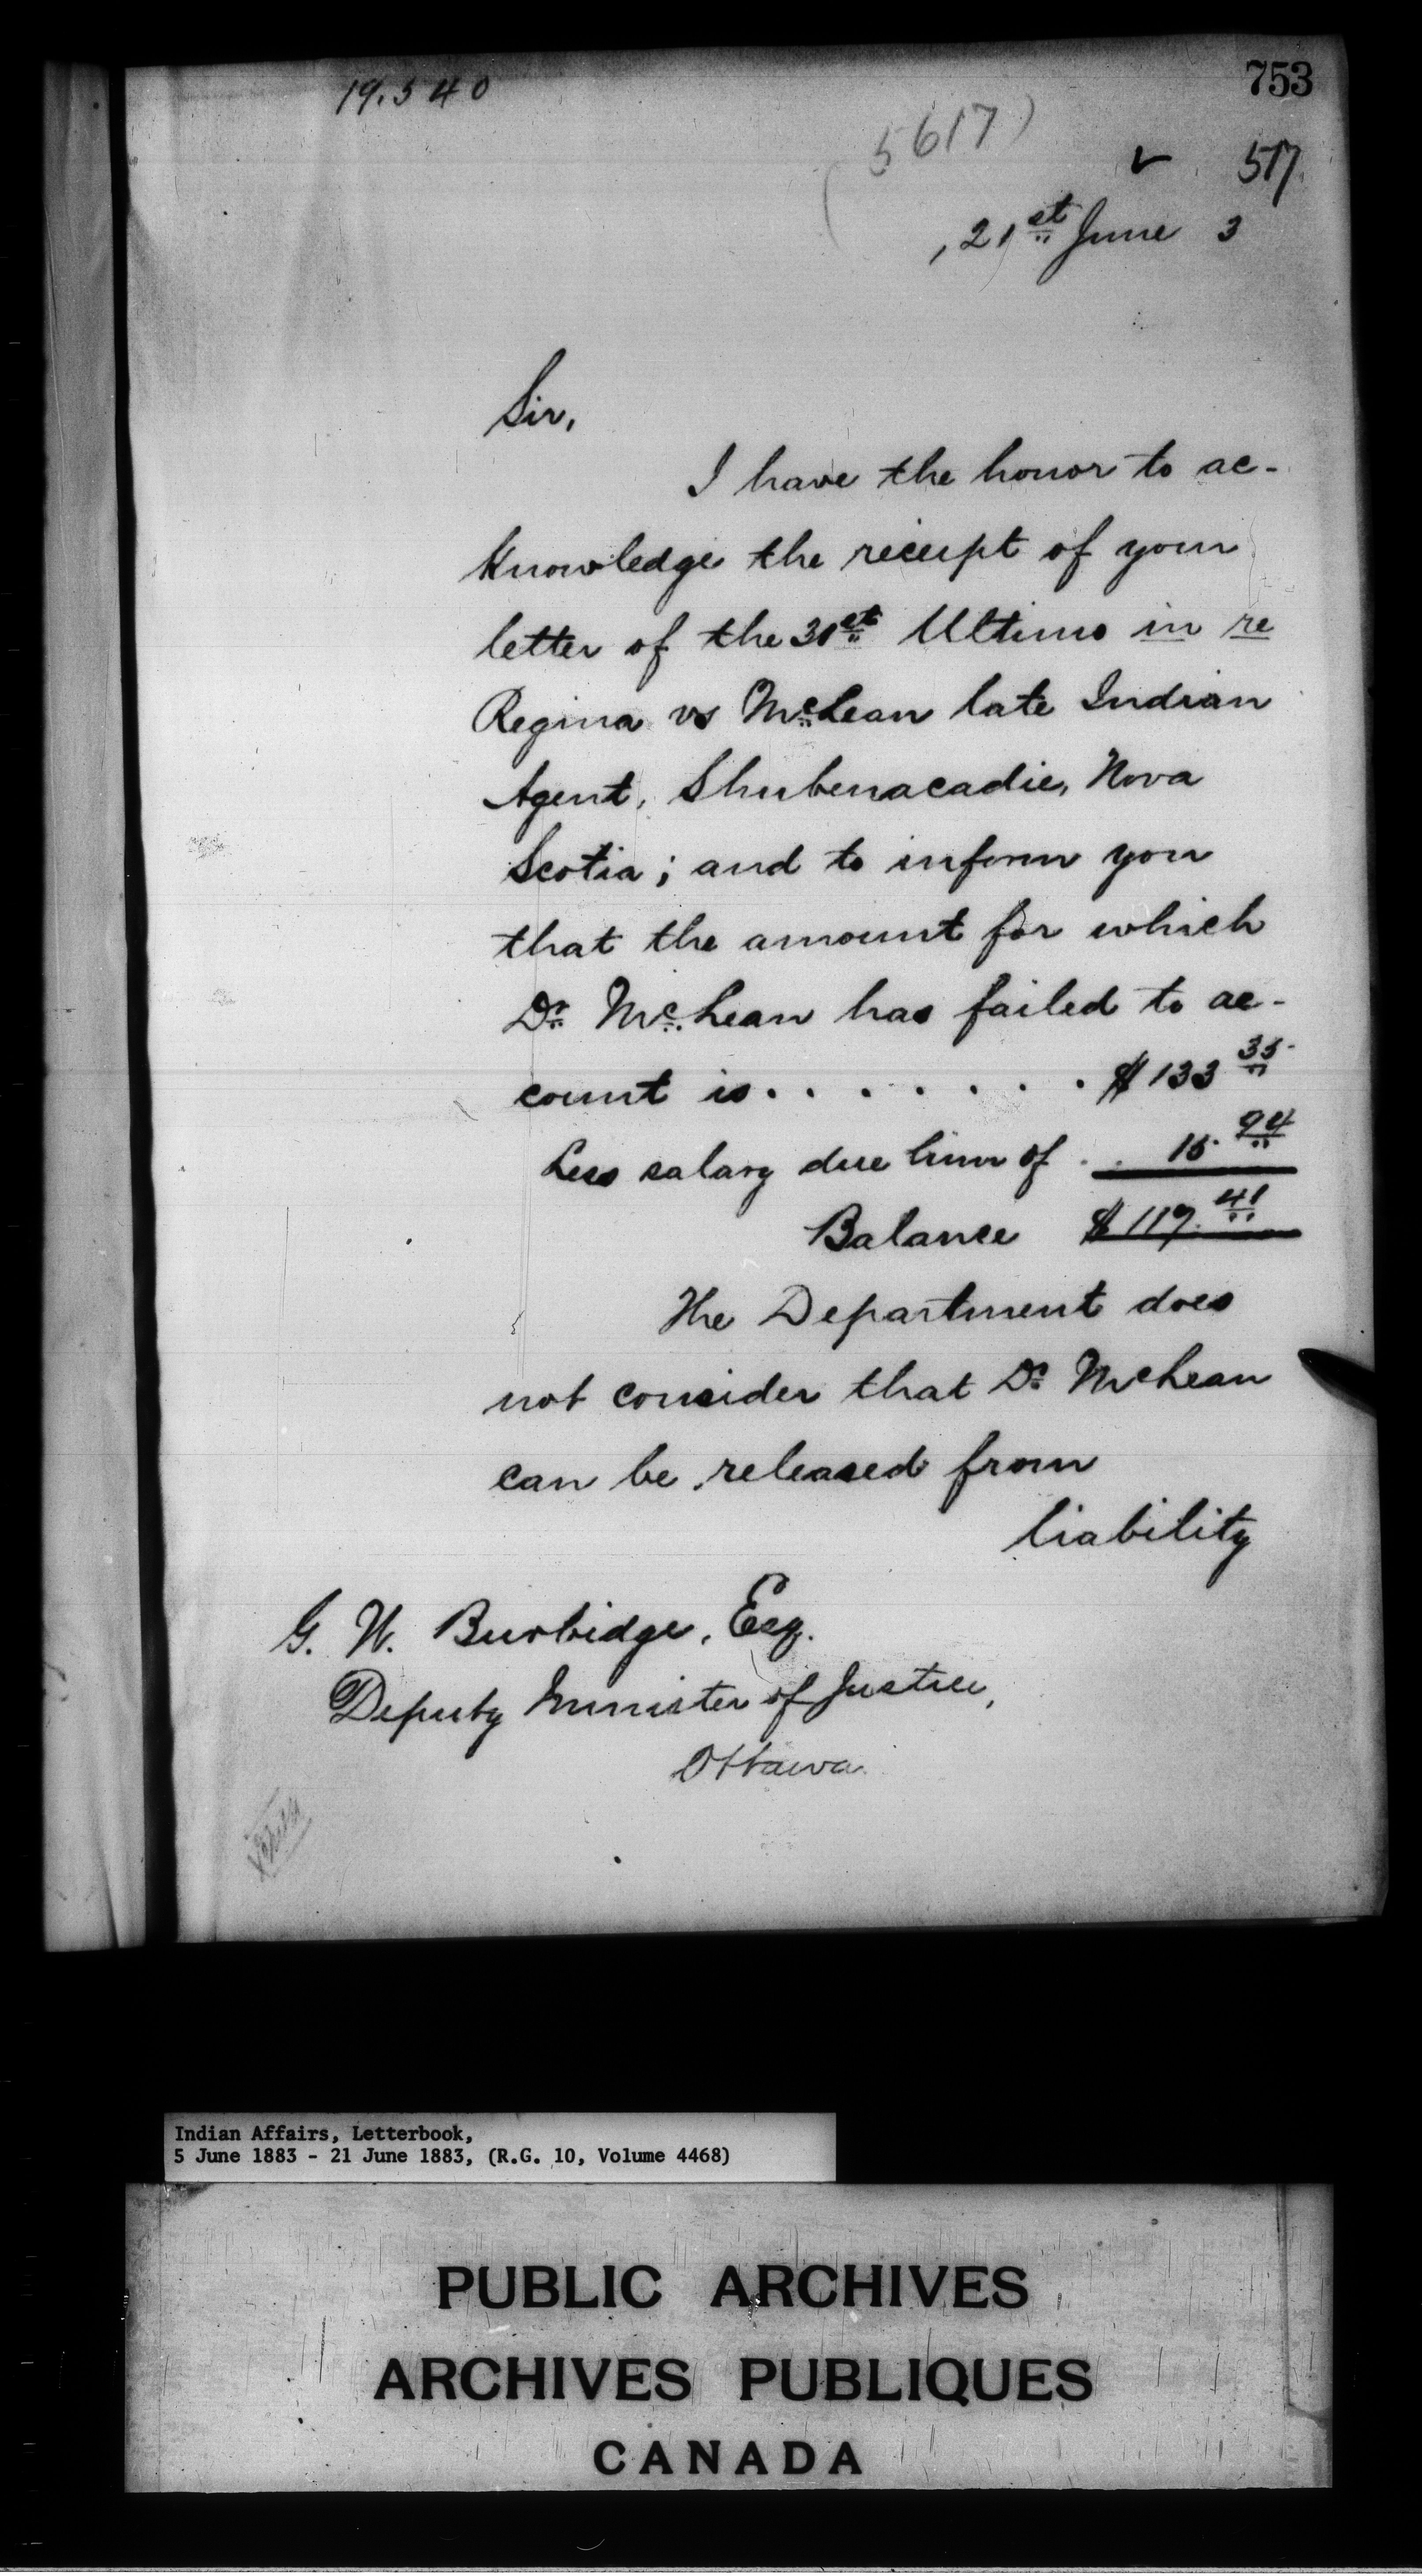 19.540
753
(5617)
517.
, 21st June 3
Sir,
I have the honor to ac-
knowledge the receipt of your
letter of the 31st Ultimo in re
Regina vs McLean late Indian
Agent, Shubenacadie, Nova
Scotia; and to inform you
that the amount for which
Dr. McLean has failed to ac-
count is . . . . . . . $133 35
Less salary due him of . . 15. 94
Balance $117. 41
The Department does
not consider that Dr. McLean
can be released from
liability
G. W. Burbidge, Esq.
Deputy Minister of Justice,
Ottawa
Indian Affairs, Letterbook,
5 June 1883 - 21 June 1883, (R.G. 10, Volume 4468)
PUBLIC ARCHIVES
ARCHIVES PUBLIQUES
CANADA